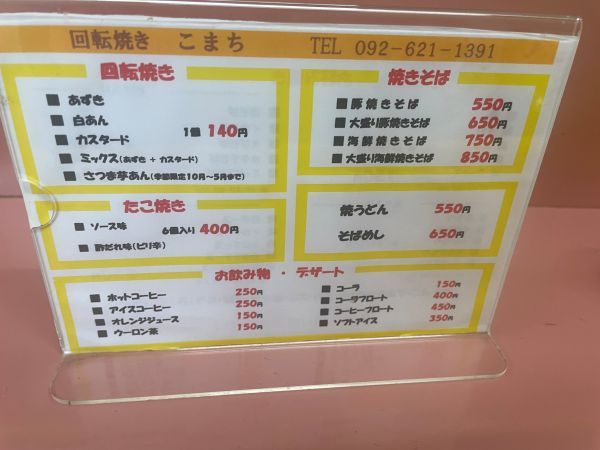 回転焼き こまち TEL 092-621-1391
回転焼き
■ あずき
■ 白あん
■ カスタード 1個 140円
■ ミックス(あずき + カスタード)
■ さつま芋あん(季節限定10月～5月まで)
焼きそば
■ 豚焼きそば 550円
■ 大盛り豚焼きそば 650円
■ 海鮮焼きそば 750円
■ 大盛り海鮮焼きそば 850円
たこ焼き
■ ソース味 6個入り 400円
■ 酢だれ味(ピリ辛)
焼うどん 550円
そばめし 650円
お飲み物 ・ デザート
■ ホットコーヒー 250円
■ アイスコーヒー 250円
■ オレンジジュース 150円
■ ウーロン茶 150円
■ コーラ 150円
■ コーラフロート 400円
■ コーヒーフロート 450円
■ ソフトアイス 350円